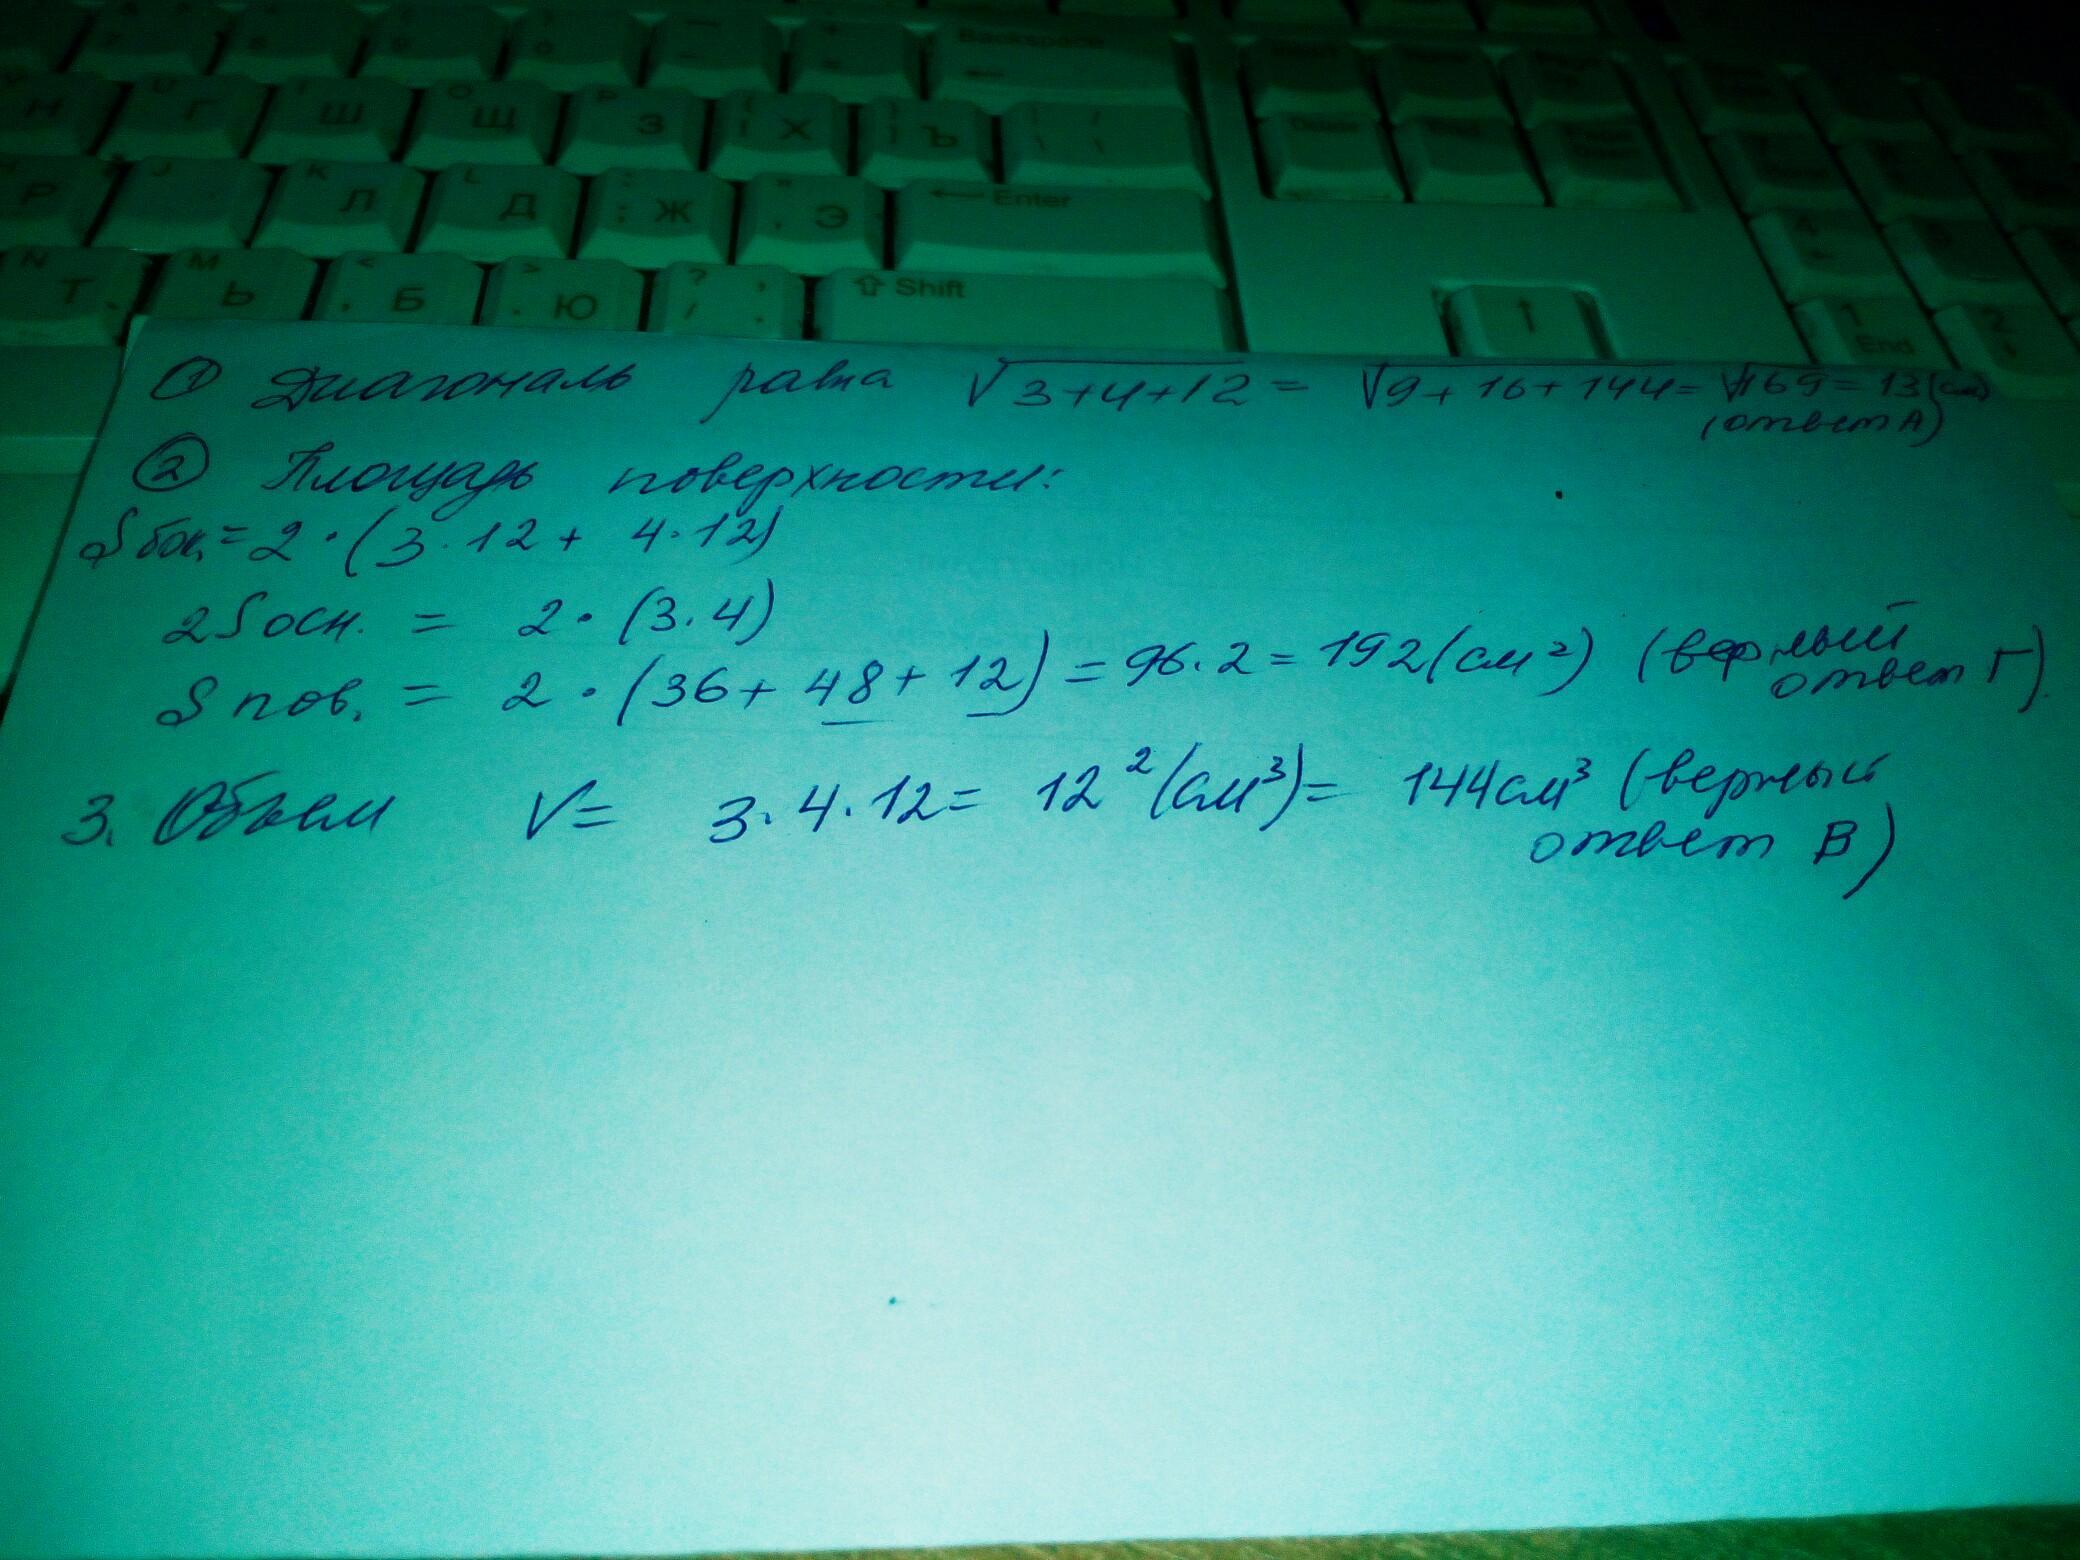 Backspace
Н Г Ш Щ З Х Ъ
Delete
Р Л Д Ж Э Enter
Т Ь Б Ю Shift
1 End 2
① Диагональ равна √3+4+12 = √9+16+144 = √169 = 13 (см)
(ответ А)
② Площадь поверхности:
Sбок. = 2·(3·12 + 4·12)
2Sосн. = 2·(3·4)
Sпов. = 2·(36+48+12) = 96·2 = 192 (см²) (верный
ответ Г)
3. Объем V = 3·4·12 = 12² (см³) = 144 см³ (верный
ответ В)